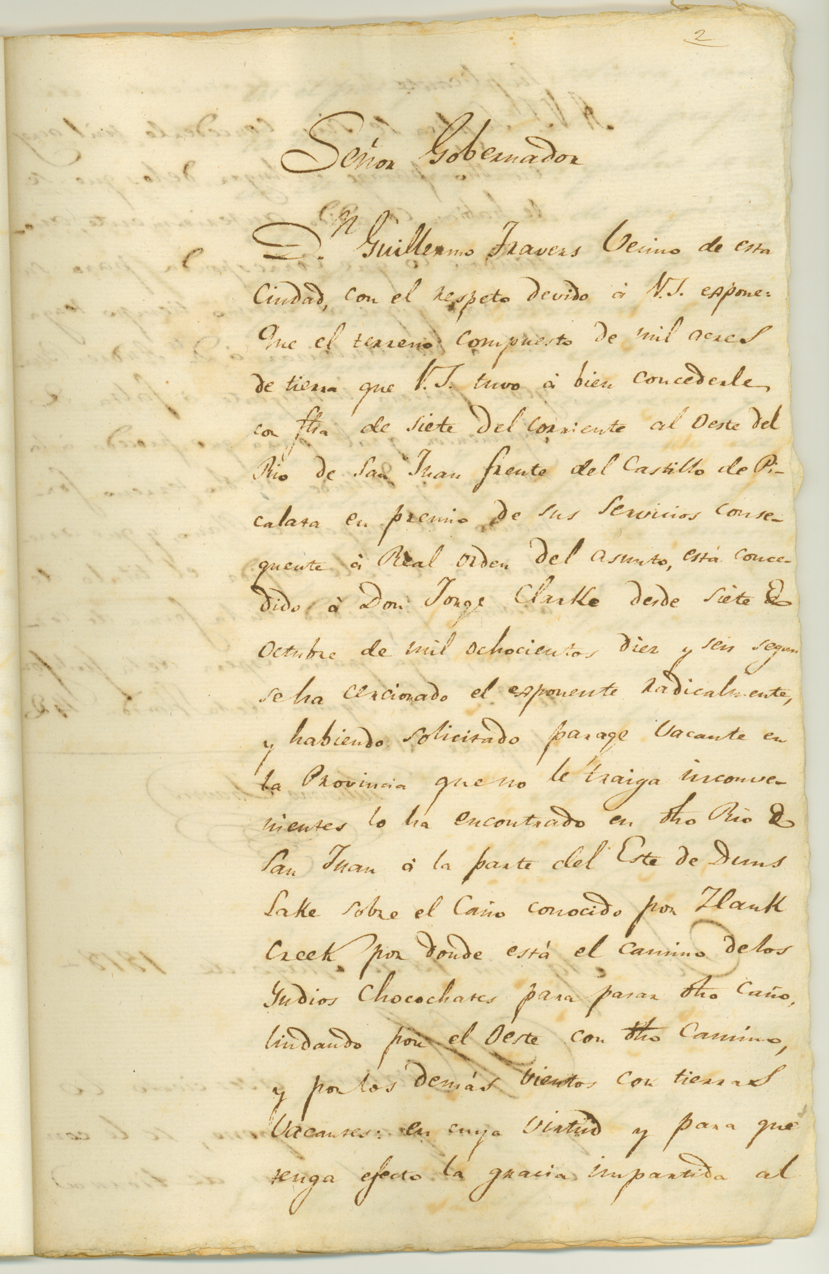 2
Señor Gobernador
Dn. Guillermo Travers Vecino de esta
Ciudad, con el respeto devido á V.S. expone:
Que el terreno compuesto de mil acres
de tierra que V.S. tuvo á bien concederle
con fha de siete del corriente al Oeste del
Rio de San Juan frente del Castillo de Pi-
colata en premio de sus servicios conse-
quente á Real orden del asunto, está conce-
dido á Don Jorge Clarke desde siete de
Octubre de mil ochocientos diez y seis segun
se ha cerciorado el exponente radicalmente,
y habiendo solicitado parage vacante en
la Provincia que no le traiga inconve-
nientes lo ha encontrado en dho Rio de
San Juan á la parte del Este de Duns
Lake sobre el Caño conocido por
Creek por donde está el camino de los
Yndios Chocochates para pasar dho Caño,
lindando por el Oeste con dho Camino,
y por los demás vientos con tierras
Vacantes: en cuya virtud y para que
tenga efecto la gracia impartida al